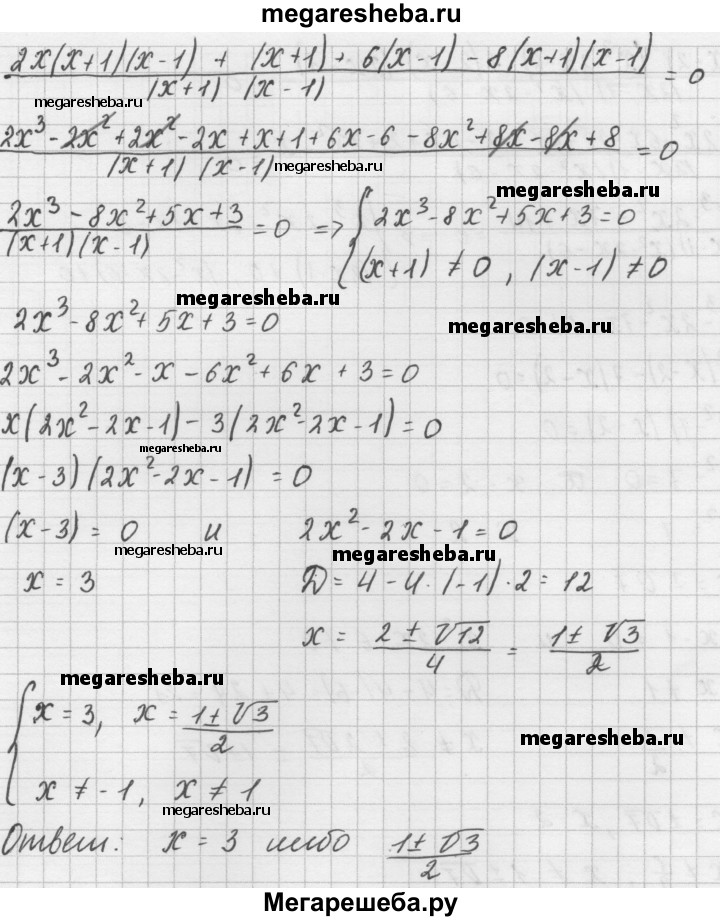 megaresheba.ru
2x(x+1)(x-1) + (x+1) + 6(x-1) - 8(x+1)(x-1) / (x+1) (x-1) = 0
megaresheba.ru
2x³ - 2x² + 2x² - 2x + x + 1 + 6x - 6 - 8x² + 8x - 8x + 8 / (x+1) (x-1) = 0
megaresheba.ru
megaresheba.ru
2x³ - 8x² + 5x + 3 / (x+1) (x-1) = 0 => { 2x³ - 8x² + 5x + 3 = 0
(x+1) ≠ 0, (x-1) ≠ 0
megaresheba.ru
2x³ - 8x² + 5x + 3 = 0
megaresheba.ru
2x³ - 2x² - x - 6x² + 6x + 3 = 0
x(2x² - 2x - 1) - 3(2x² - 2x - 1) = 0
megaresheba.ru
(x-3)(2x² - 2x - 1) = 0
(x-3) = 0 и 2x² - 2x - 1 = 0
megaresheba.ru
megaresheba.ru
x = 3 D = 4 - 4·(-1)·2 = 12
x = 2 ± √12 / 4 = 1 ± √3 / 2
megaresheba.ru
{ x = 3, x = 1 ± √3 / 2
megaresheba.ru
x ≠ -1, x ≠ 1
megaresheba.ru
Ответ: x = 3 либо 1 ± √3 / 2
Мегарешеба.ру